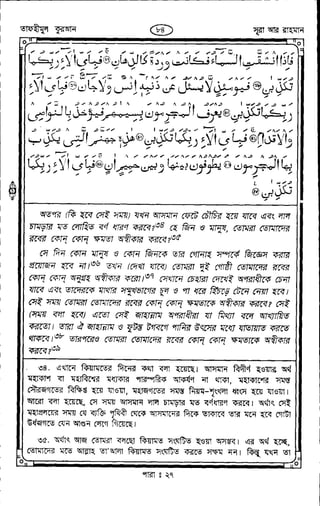 তাফহীমুল কুরআন
৮৪
সূরা আর রাহমান
فَإِذَا انْشَقَّتِ السَّمَاءُ فَكَانَتْ وَرْدَةً كَالدِّهَانِ ۞ فَبِأَيِّ آلَاءِ رَبِّكُمَا
تُكَذِّبٰنِ ۞ فَيَوْمَئِذٍ لَّا يُسْئَلُ عَنْ ذَنْبِهٖ إِنْسٌ وَّلَا جَانٌّ ۞ فَبِأَيِّ آلَاءِ
رَبِّكُمَا تُكَذِّبٰنِ ۞ يُعْرَفُ الْمُجْرِمُوْنَ بِسِيْمٰهُمْ فَيُؤْخَذُ بِالنَّوَاصِيْ
وَالْأَقْدَامِ ۞ فَبِأَيِّ آلَاءِ رَبِّكُمَا تُكَذِّبٰنِ ۞ هٰذِهٖ جَهَنَّمُ الَّتِيْ يُكَذِّبُ
بِهَا الْمُجْرِمُوْنَ ۞ يَطُوْفُوْنَ بَيْنَهَا وَبَيْنَ حَمِيْمٍ اٰنٍ ۞ فَبِأَيِّ آلَاءِ رَبِّكُمَا
تُكَذِّبٰنِ ۞
অতপর (কি হবে সেই সময়) যখন আসমান ফেটে চৌচির হয়ে যাবে এবং লাল
চামড়ার মত লোহিত বর্ণ ধারণ করবে?৩৪ হে জিন ও মানুষ, তোমরা তোমাদের
রবের কোন্ কোন্ ক্ষমতা অস্বীকার করবে?৩৫
সে দিন কোন মানুষ ও কোন জিনকে তার গোনাহ সম্পর্কে জিজ্ঞেস করার
প্রয়োজন হবে না।৩৬ তখন (দেখা যাবে) তোমরা দুই গোষ্ঠী তোমাদের রবের
কোন্ কোন্ অনুগ্রহ অস্বীকার করো।৩৭ সেখানে চেহারা দেখেই অপরাধীকে চেনা
যাবে এবং তাদেরকে মাথার সম্মুখভাগের চুল ও পা ধরে হিঁচড়ে টেনে নেয়া হবে।
সেই সময় তোমরা তোমাদের রবের কোন্ কোন্ ক্ষমতাকে অস্বীকার করবে? সেই
(সময় বলা হবে) এতো সেই জাহান্নাম অপরাধীরা যা মিথ্যা বলে আখ্যায়িত
করতো। তারা ঐ জাহান্নাম ও ফুটন্ত টগবগে পানির উৎসের মধ্যে যাতায়াত করতে
থাকবে।৩৮ তারপরেও তোমরা তোমাদের রবের কোন্ কোন্ ক্ষমতাকে অস্বীকার
করবে?৩৯
৩৪. এখানে কিয়ামতের দিনের কথা বলা হয়েছে। আসমান বিদীর্ণ হওয়ার অর্থ
মহাকাশ বা মহাবিশ্বের মধ্যকার পারস্পরিক আকর্ষণ না থাকা, মহাকাশের সমস্ত
সৌরজগতের বিক্ষিপ্ত হয়ে যাওয়া, মহাজগতের সমস্ত নিয়ম-শৃংখলা ধ্বংস হয়ে যাওয়া।
আরো বলা হয়েছে, সে সময় আসমান লাল চামড়ার মত বর্ণধারণ করবে। অর্থাৎ সেই
মহাপ্রলয়ের সময় যে ব্যক্তি পৃথিবী থেকে আসমানের দিকে তাকাবে তার মনে হবে গোটা
উর্ধজগতে যেন আগুন লেগে গিয়েছে।
৩৫. অর্থাৎ আজ তোমরা বলছো কিয়ামত সংঘটিত হওয়া অসম্ভব। এর অর্থ হচ্ছে,
তোমাদের মতে আল্লাহ তা'আলা কিয়ামত সংঘটিত করতে সক্ষম নন। কিন্তু যখন তা
পারা ঃ ২৭